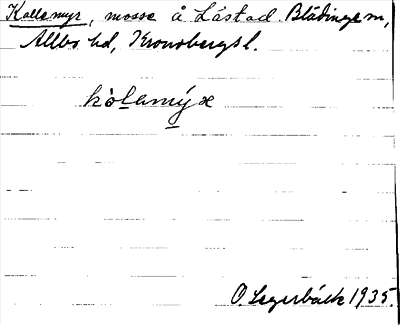 Kallemyr, mosse å Låstad Blädinge sn,
Allbo hd, Kronobergs l.
kòlemýr
O. Legerbäck 1935.